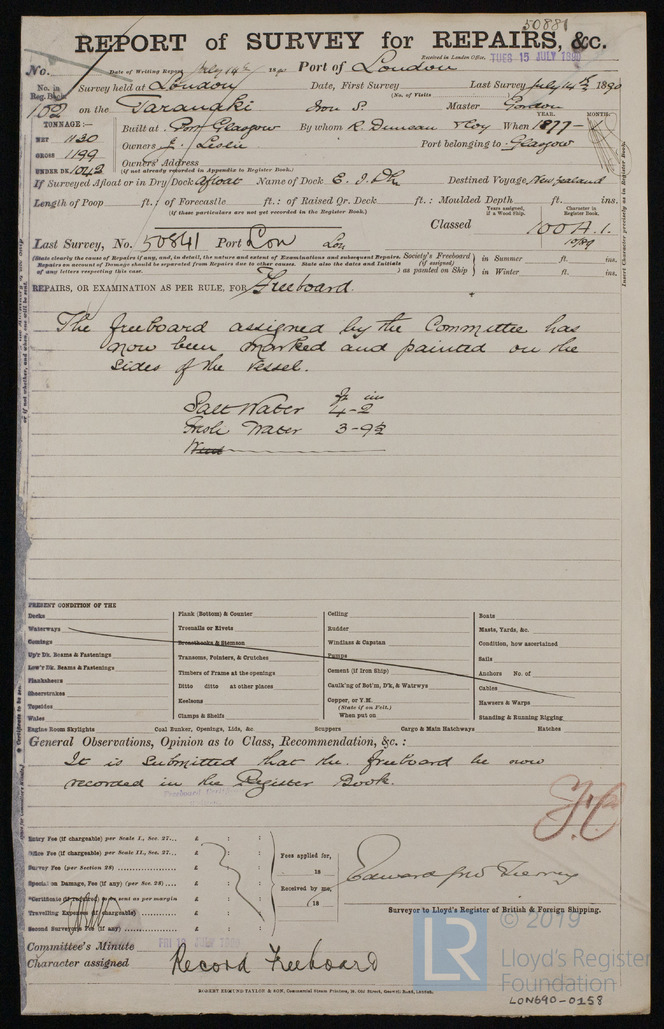 50881
REPORT of SURVEY for REPAIRS, &c.
Received in London Office, TUES 15 JULY 1890
No. Date of Writing Report July 14th 1890 Port of London
No. in Reg. Book 102 Survey held at London Date, First Survey Last Survey July 14th 1890
(No. of Visits
on the Taranaki Iron S. Master Gordon
TONNAGE:—
NET 1130
GROSS 1199
UNDER DK 1042
YEAR. MONTH.
Built at Port Glasgow By whom R. Duncan & Coy When 1877-
Owners Leslie Port belonging to Glasgow
Owners' Address
(if not already recorded in Appendix to Register Book.)
If Surveyed Afloat or in Dry Dock Afloat Name of Dock E. I. Dk Destined Voyage New Zealand
Length of Poop ft.: of Forecastle ft.: of Raised Qr. Deck ft.: Moulded Depth ft. ins.
(if these particulars are not yet recorded in the Register Book.)
Years assigned, if a Wood Ship.
Character in Register Book.
Classed 100 A.1.
Last Survey, No. 50841 Port Lon Lon
(State clearly the causes of Repairs if any, and, in detail, the nature and extent of Examinations and subsequent Repairs.
Repairs on account of Damage should be separated from Repairs due to other causes. State also the dates and Initials
of any letters respecting this case.
Society's Freeboard (if assigned) as painted on Ship
in Summer ft. ins.
in Winter ft. ins.
Insert Character precisely as in Register Book.
REPAIRS, OR EXAMINATION AS PER RULE, FOR Freeboard.
The freeboard assigned by the Committee has
now been marked and painted on the
sides of the vessel.
ft ins
Salt Water 4-2
Fresh Water 3-9½
PRESENT CONDITION OF THE
Decks
Waterways
Comings
Up'r Dk. Beams & Fastenings
Low'r Dk. Beams & Fastenings
Planksheers
Sheerstrakes
Topsides
Wales
Engine Room Skylights
Plank (Bottom) & Counter
Treenails or Rivets
Breasthooks & Stemson
Transoms, Pointers, & Crutches
Timbers of Frame at the openings
Ditto ditto at other places
Keelsons
Clamps & Shelfs
Coal Bunker, Openings, Lids, &c
Ceiling
Rudder
Windlass & Capstan
Pumps
Cement (if Iron Ship)
Caulk'g of Bot'm, D'k, & Watrwys
Copper, or Y.M.
(State if on Felt.)
When put on
Scuppers
Boats
Masts, Yards, &c.
Condition, how ascertained
Sails
Anchors No. of
Cables
Hawsers & Warps
Standing & Running Rigging
Cargo & Main Hatchways
Hatches
General Observations, Opinion as to Class, Recommendation, &c. :
It is submitted that the freeboard be now
recorded in the Register Book.
Entry Fee (if chargeable) per Scale I., Sec. 27... £ : :
Office Fee (if chargeable) per Scale II., Sec. 27... £ : :
Survey Fee (per Section 28) £ : :
Special on Damage, Fee (if any) (per Sec. 28) £ : :
*Certificate (if required) to be sent as per margin
Travelling Expenses (if chargeable) £ : :
Second Surveyor's Fee (if any) £ : :
Fees applied for,
18
Received by me,
18
Edward Jno Tierney
Surveyor to Lloyd's Register of British & Foreign Shipping.
Committee's Minute FRI 18 JULY 1890
Character assigned Record Freeboard
ROBERT EDMUND TAYLOR & SON, Commercial Steam Printers, 19, Old Street, Goswell Road, London.
© 2019
LR
Lloyd's Register
Foundation
LON690-0158